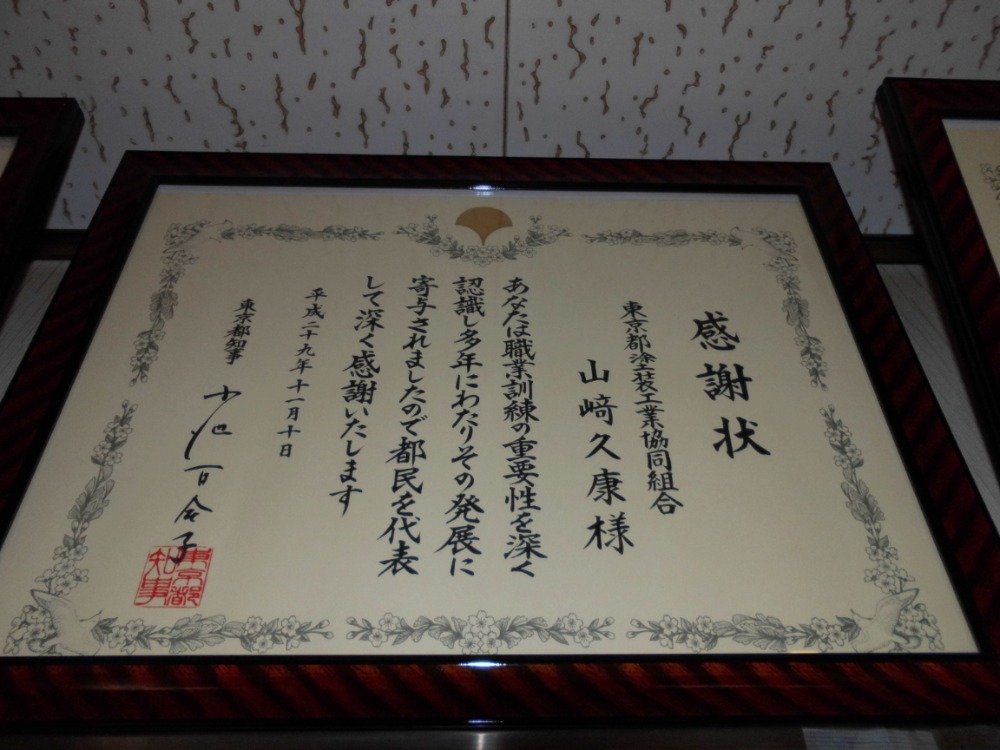 感謝状
東京都塗装工業協同組合
山﨑久康様
あなたは職業訓練の重要性を深く
認識し多年にわたりその発展に
寄与されましたので都民を代表
して深く感謝いたします
平成二十九年十一月十日
東京都知事 小池百合子
東京都知事